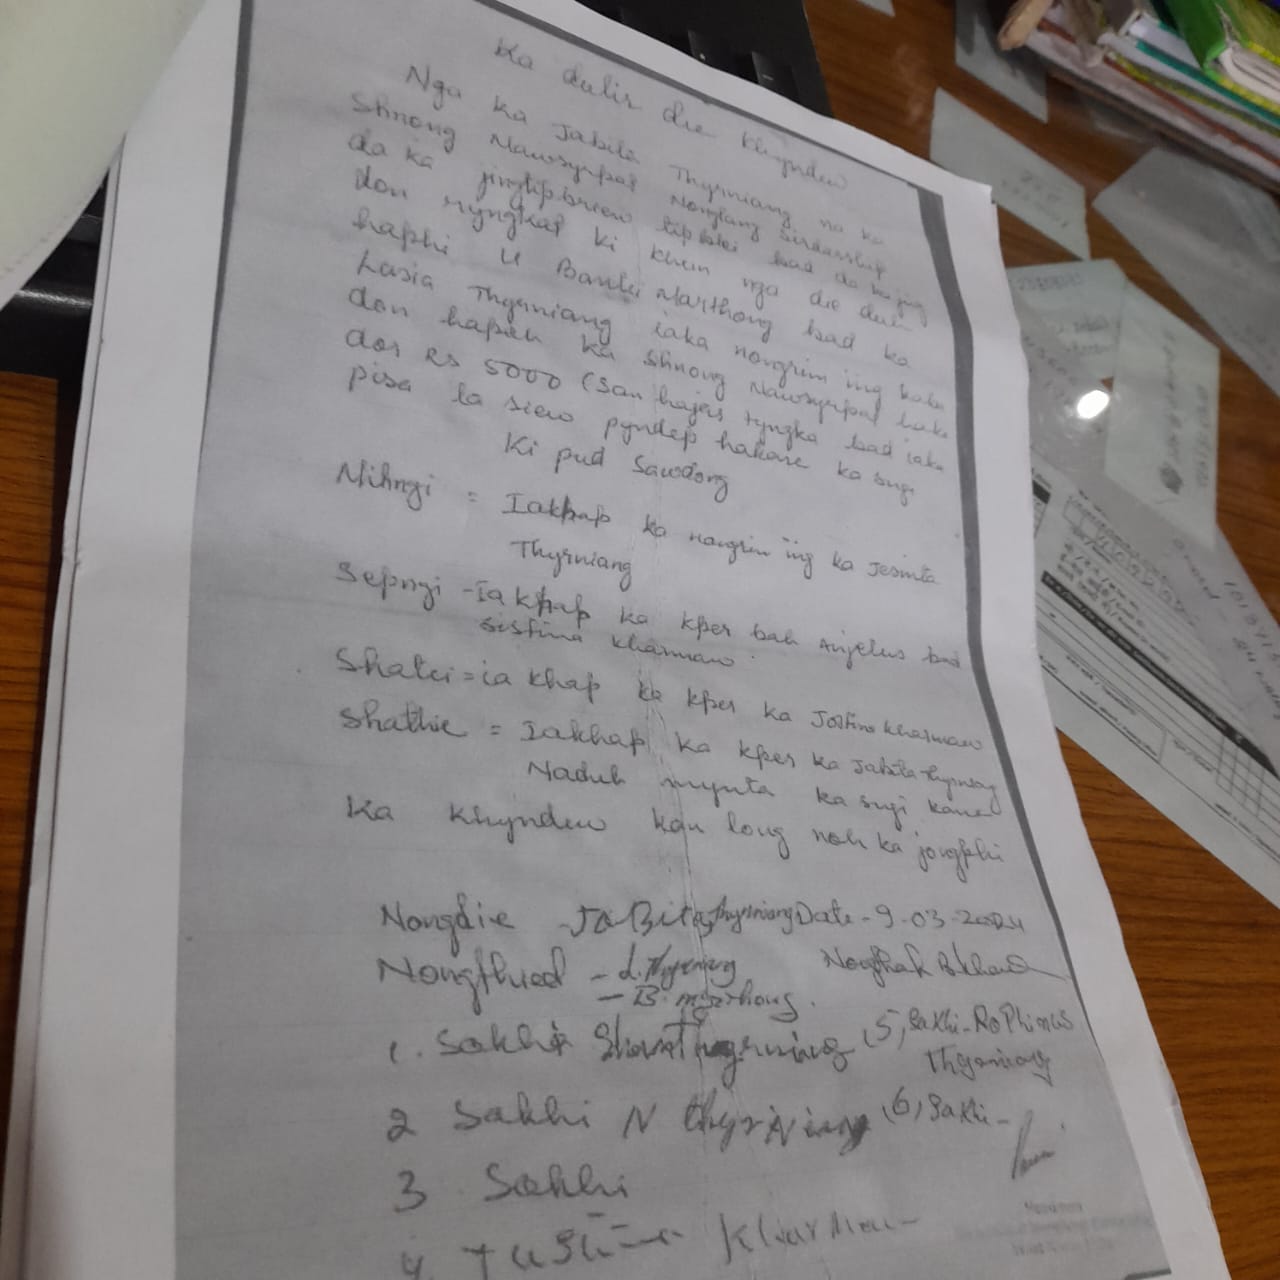 Ka dulir die khyndew
Nga Ka Jabita Thyrniang na ka
Shnong Mawsyrpat Nonglang Sirdarship
da ka jingtip briew tip blei bad da ka jing
don nyngkap ki khun nga die duh
haphi U Banlu Marthong bad ka
Lasia Thyrniang iaka nongrim ing kaba
don hapoh ka shnong Mawsyrpat haka
dor Rs 5000 (San hajar tyngka bad iaka
pisa la siew pyndep hakane ka sngi
Ki pud Sawdong
Mihngi = Iakhap ka nongrim ing ka Jesinta
Thyrniang
Sepngi - Ia khap ka kper bah Anjelus bad
Sistina Kharmaw
Shatei = ia khap ka kper ka Jostina Kharmaw
Shathie = Iakhap ka kper ka Jabita Thyrniang
Naduh mynta ka sngi kane
Ka khyndew kan long noh ka jongphi
Nongdie JaBita Thyrniang Date - 9-03-2004
Nongthied - L. Thyrniang
- B. Marthong.
1. Sakhi Thyrniang (5) Sakhi - RoPhinus
Thyrniang
2 Sakhi N thyrNiang (6) Sakhi -
3 Sakhi
4 Kharmaw